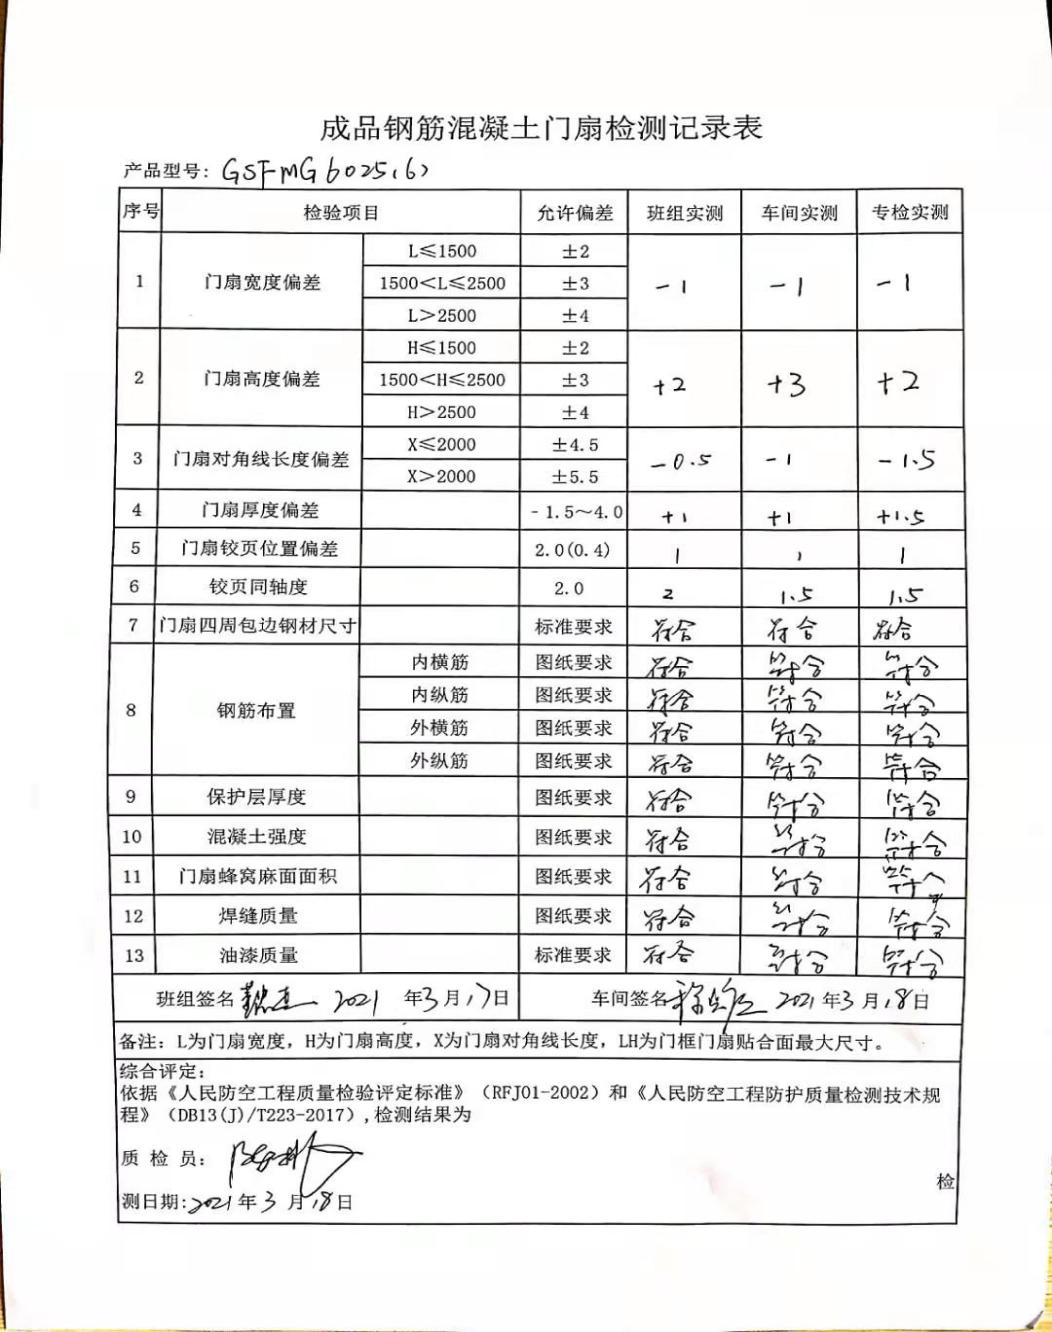 成品钢筋混凝土门扇检测记录表
产品型号: GSFMG6025(6)
序号 检验项目 允许偏差 班组实测 车间实测 专检实测
1 门扇宽度偏差 L≤1500 ±2 -1 -1 -1
1500<L≤2500 ±3
L>2500 ±4
2 门扇高度偏差 H≤1500 ±2 +2 +3 +2
1500<H≤2500 ±3
H>2500 ±4
3 门扇对角线长度偏差 X≤2000 ±4.5 -0.5 -1 -1.5
X>2000 ±5.5
4 门扇厚度偏差 -1.5~4.0 +1 +1 +1.5
5 门扇铰页位置偏差 2.0(0.4) 1 1 1
6 铰页同轴度 2.0 2 1.5 1.5
7 门扇四周包边钢材尺寸 标准要求 符合 符合 符合
8 钢筋布置 内横筋 图纸要求 符合 符合 符合
内纵筋 图纸要求 符合 符合 符合
外横筋 图纸要求 符合 符合 符合
外纵筋 图纸要求 符合 符合 符合
9 保护层厚度 图纸要求 符合 符合 符合
10 混凝土强度 图纸要求 符合 符合 符合
11 门扇蜂窝麻面面积 图纸要求 符合 符合 符合
12 焊缝质量 图纸要求 符合 符合 符合
13 油漆质量 标准要求 符合 符合 符合
班组签名 2021 年3月17日 车间签名 2021年3月18日
备注: L为门扇宽度, H为门扇高度, X为门扇对角线长度, LH为门框门扇贴合面最大尺寸。
综合评定:
依据《人民防空工程质量检验评定标准》（RFJ01-2002）和《人民防空工程防护质量检测技术规
程》（DB13(J)/T223-2017）,检测结果为
质 检 员:
检
测日期:2021年3月18日